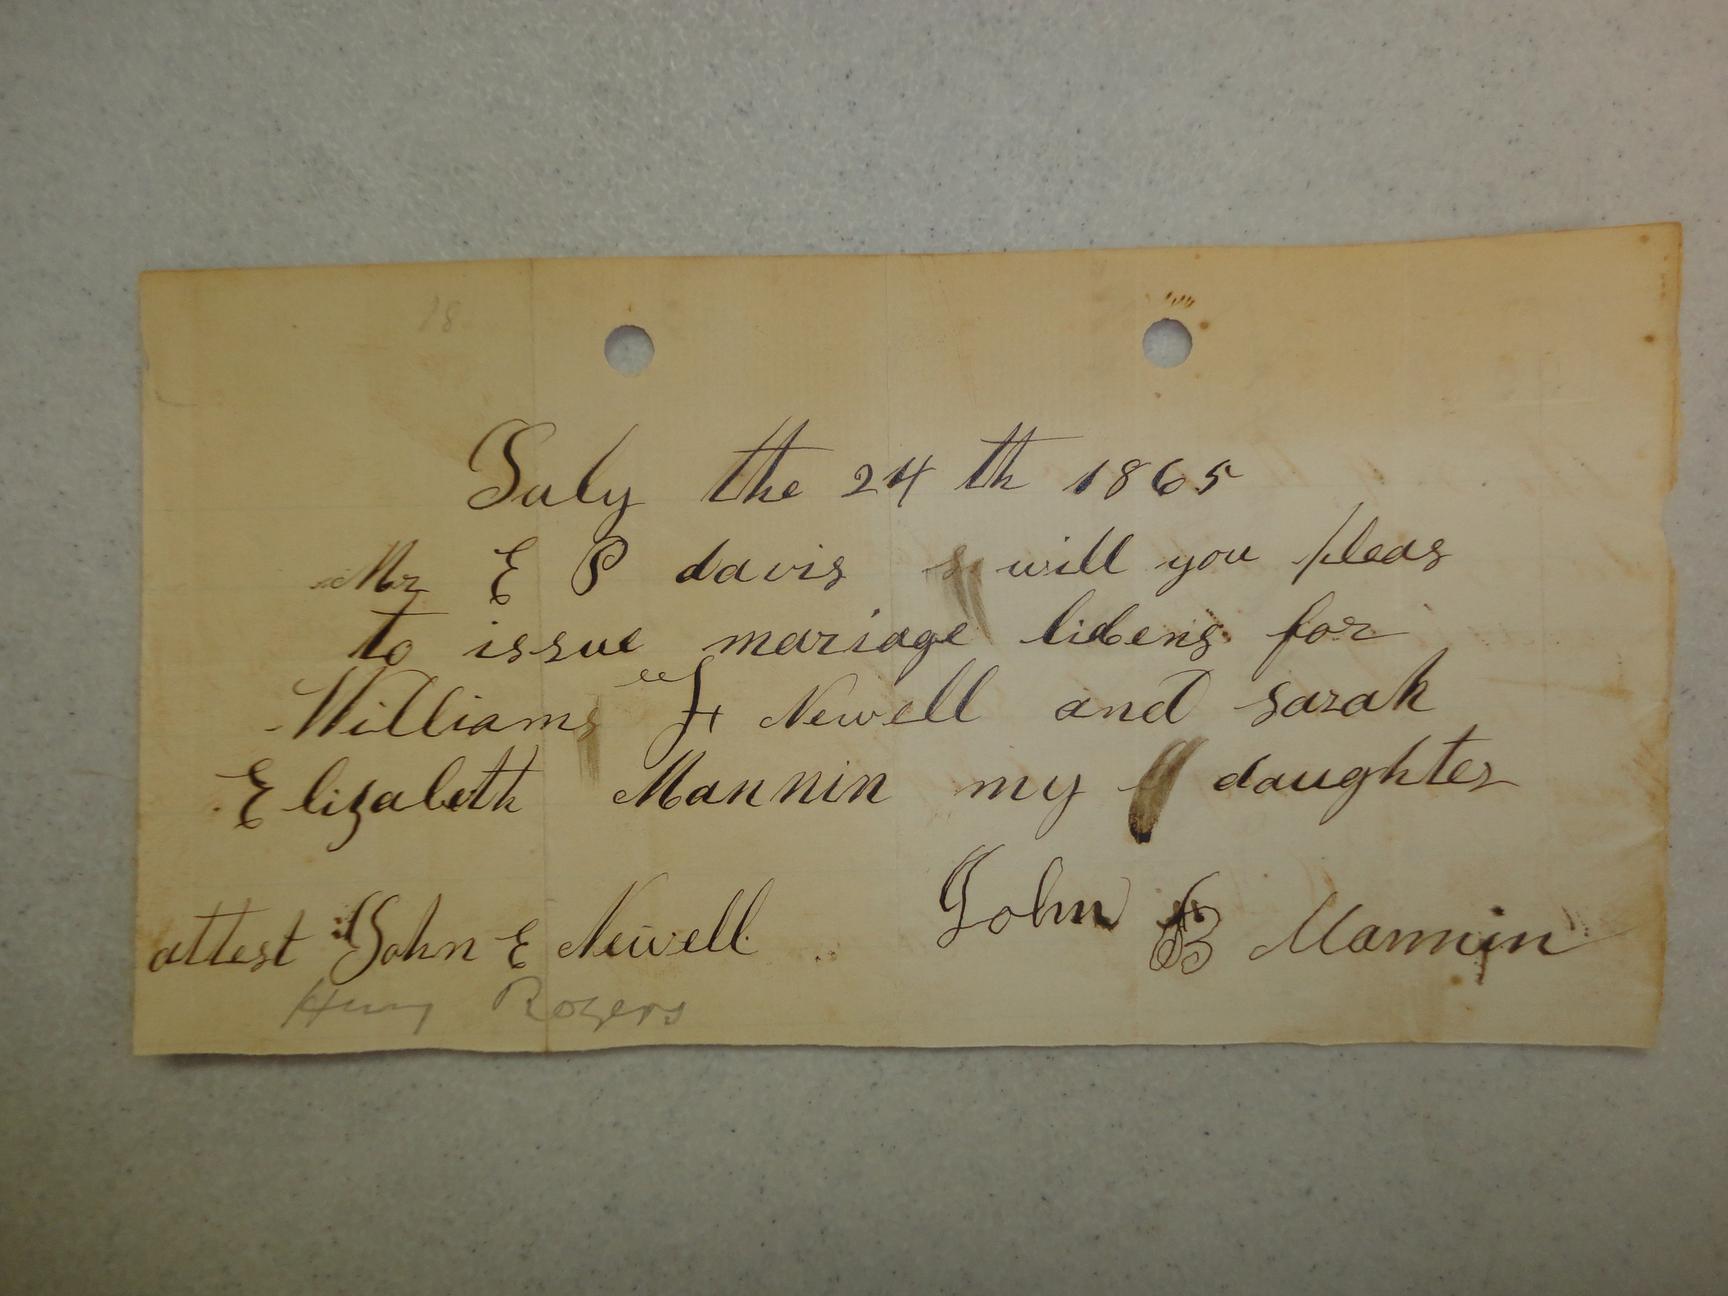 18
July the 24 th 1865
Mr E P davis will you pleas
to issue mariage libens for
William F Newell and sarah
Elizabeth Mannin my daughter
John B Mannin
attest John E Newell
Henry Rogers